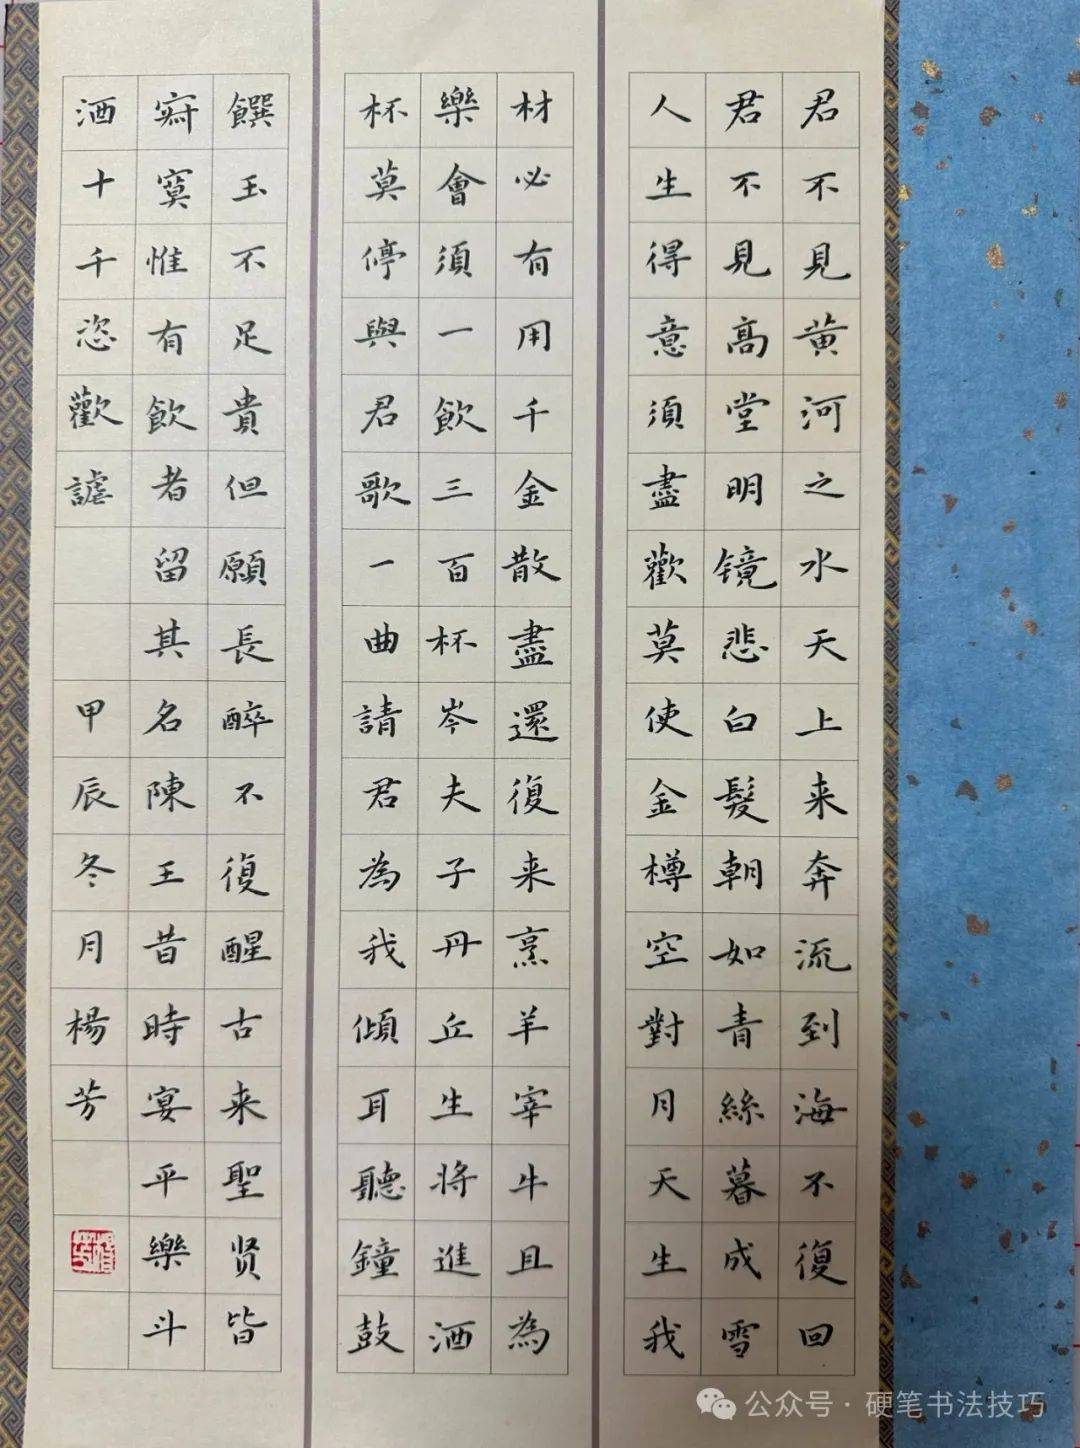 君不見黄河之水天上来奔流到海不復回
君不見高堂明镜悲白髮朝如青絲暮成雪
人生得意須盡歡莫使金樽空對月天生我
材必有用千金散盡還復来烹羊宰牛且為
樂會須一飲三百杯岑夫子丹丘生將進酒
杯莫停與君歌一曲請君為我傾耳聽鐘鼓
饌玉不足貴但願長醉不復醒古来聖贤皆
寂寞惟有飲者留其名陳王昔時宴平樂斗
酒十千恣歡謔
甲辰冬月楊芳
楊芳
公众号·硬笔书法技巧